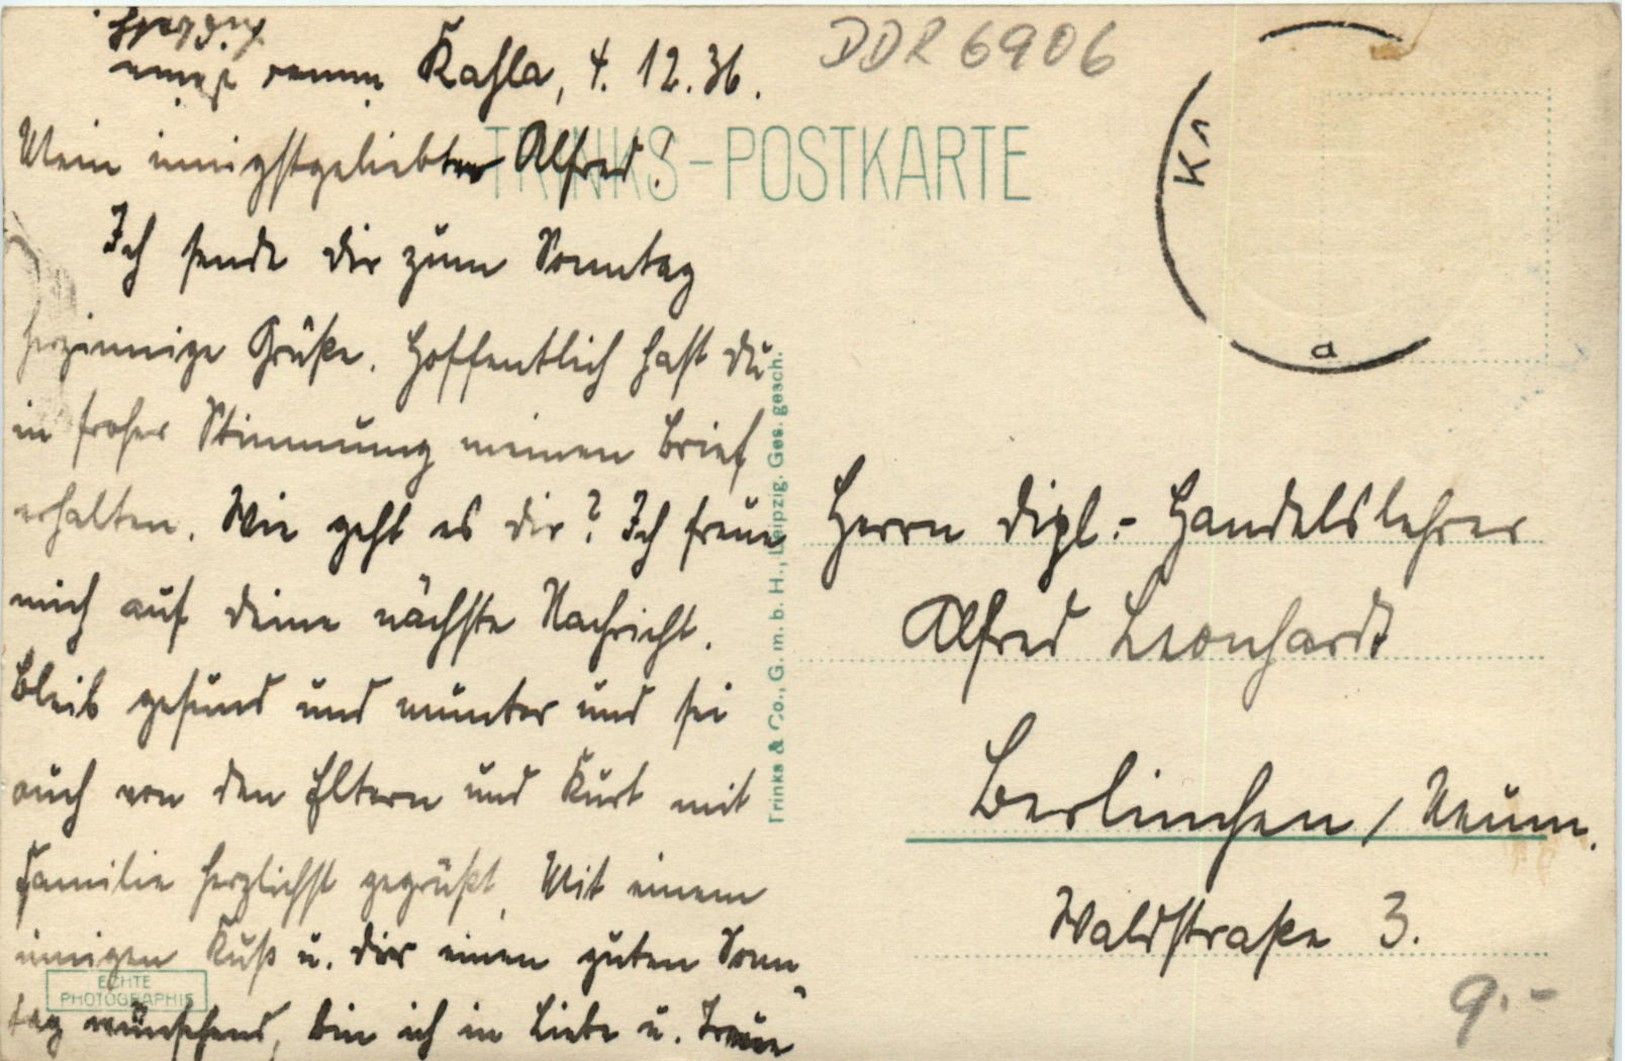 Kahla, 4. 12. 36.
Mein innigstgeliebter Alfred!
Ich sende dir zum Sonntag
herzinnige Grüße. Hoffentlich hast du
in froher Stimmung meinen Brief
erhalten. Wie geht es dir? Ich freue
mich auf deine nächste Nachricht.
Bleib gesund und munter und sei
auch von den Eltern und Kurt mit
Familie herzlichst gegrüßt. Mit einem
innigen Kuß u. dir einen guten Sonn-
tag wünschend, bin ich in Liebe u. Treue
immer deine
DDR 6906
TRINKS-POSTKARTE
K1
a
Trinks & Co., G. m. b. H., Leipzig. Ges. gesch.
ECHTE
PHOTOGRAPHIE
Herrn Dipl.-Handelslehrer
Alfred Leonhardt
Berlinchen / Neum.
Waldstraße 3.
9.-